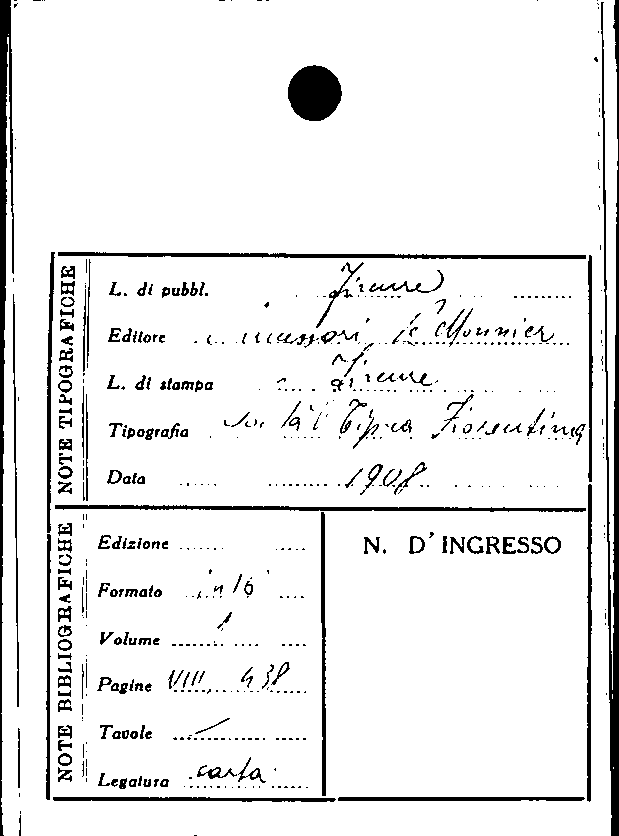 NOTE TIPOGRAFICHE
L. di pubbl. Firenze
Editore Successori Le Monnier
L. di stampa Firenze
Tipografia Tip.ra Fiorentina
Data 1908
NOTE BIBLIOGRAFICHE
Edizione
Formato in 16°
Volume 1
Pagine VIII, 438
Tavole /
Legatura carta
N. D'INGRESSO